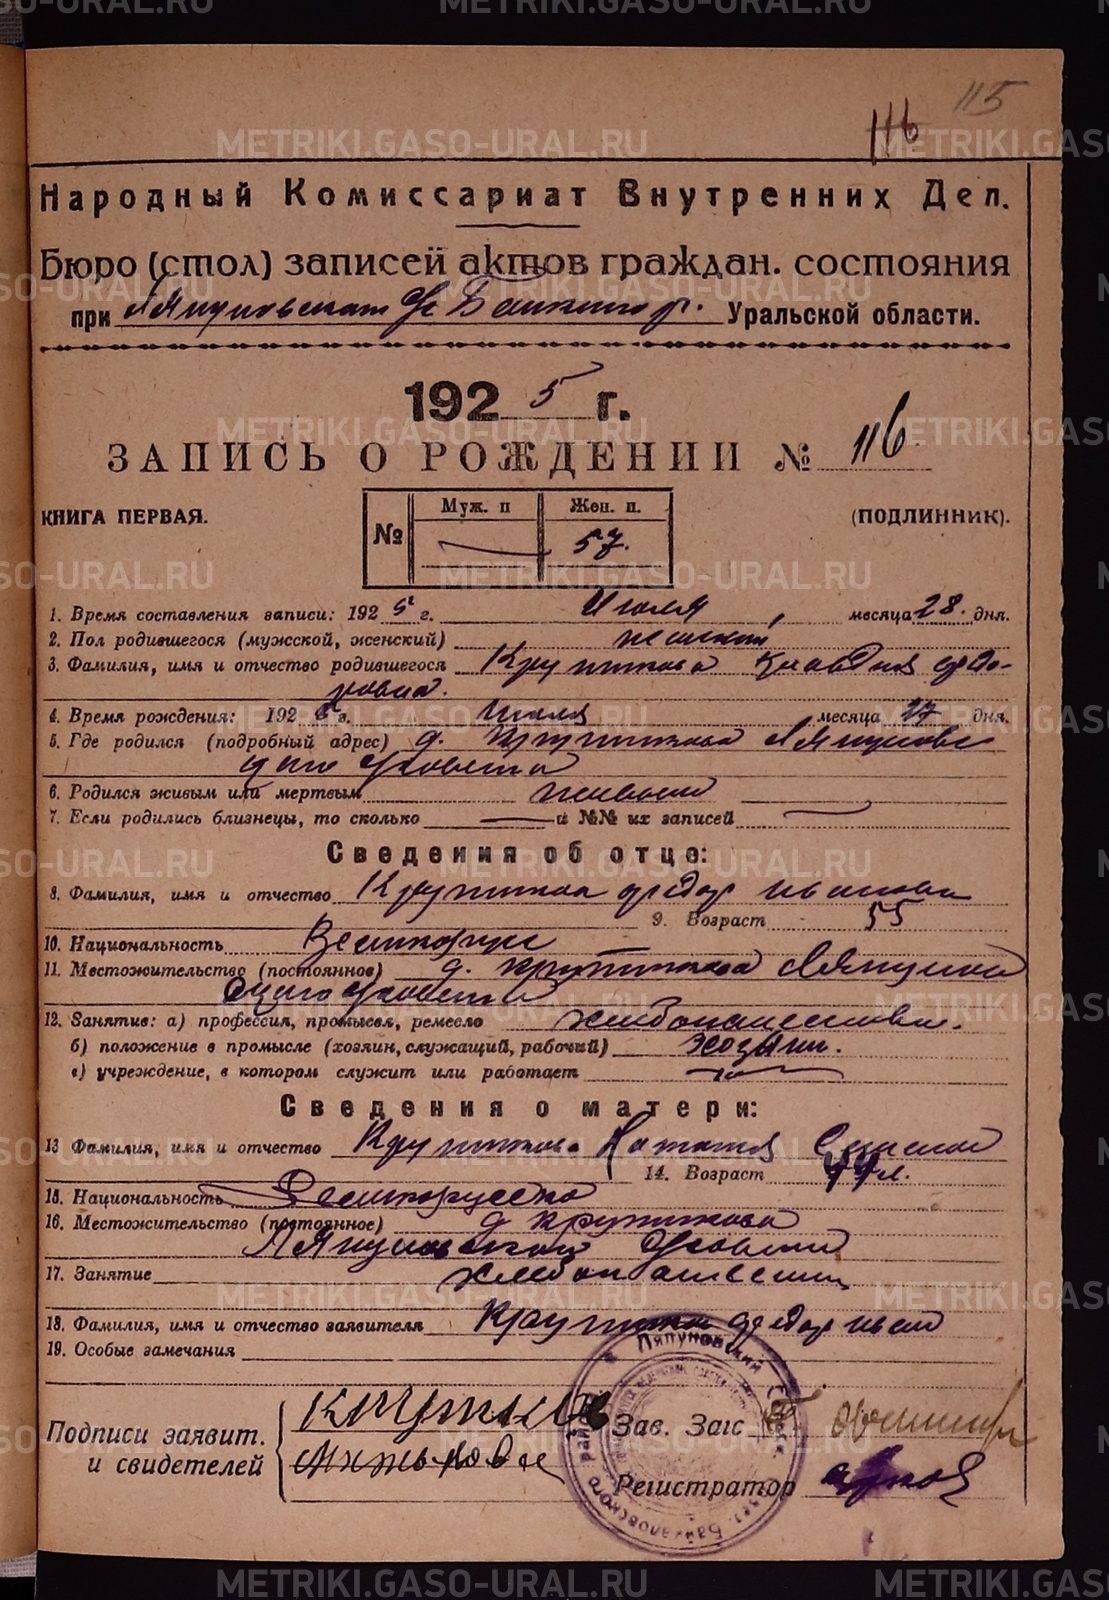 115
116
Народный Комиссариат Внутренних Дел.
Бюро (стол) записей актов граждан. состояния
при Уральской области.
1925 г.
ЗАПИСЬ О РОЖДЕНИИ № 116
Муж. п Жен. п.
КНИГА ПЕРВАЯ. № 57. (ПОДЛИННИК).
1. Время составления записи: 1925 г. Июля месяца 28. дня.
2. Пол родившегося (мужской, женский) женский
3. Фамилия, имя и отчество родившегося Крутикова Клавдия Федо-
ровна.
4. Время рождения: 1925 г. Июля месяца 27 дня.
5. Где родился (подробный адрес) д. Крутикова Ляпуновс
6. Родился живым или мертвым живым
7. Если родились близнецы, то сколько и №№ их записей
Сведения об отце:
8. Фамилия, имя и отчество Крутиков Федор Иванови
9. Возраст 55
10. Национальность Великорус
11. Местожительство (постоянное) д. Крутикова
12. Занятие: а) профессия, промысел, ремесло
б) положение в промысле (хозяин, служащий, рабочий) хозяин.
в) учреждение, в котором служит или работает
Сведения о матери:
13 Фамилия, имя и отчество Крутикова
14. Возраст 44 л.
15. Национальность Великоруска
16. Местожительство (постоянное) д Крутикова
17. Занятие
18. Фамилия, имя и отчество заявителя Крутиков Федор Иван
19. Особые замечания
Подписи заявит. Крутиков Зав. Загс
и свидетелей Регистратор
Ляпуновский
Байкаловского района
METRIKI.GASO-URAL.RU